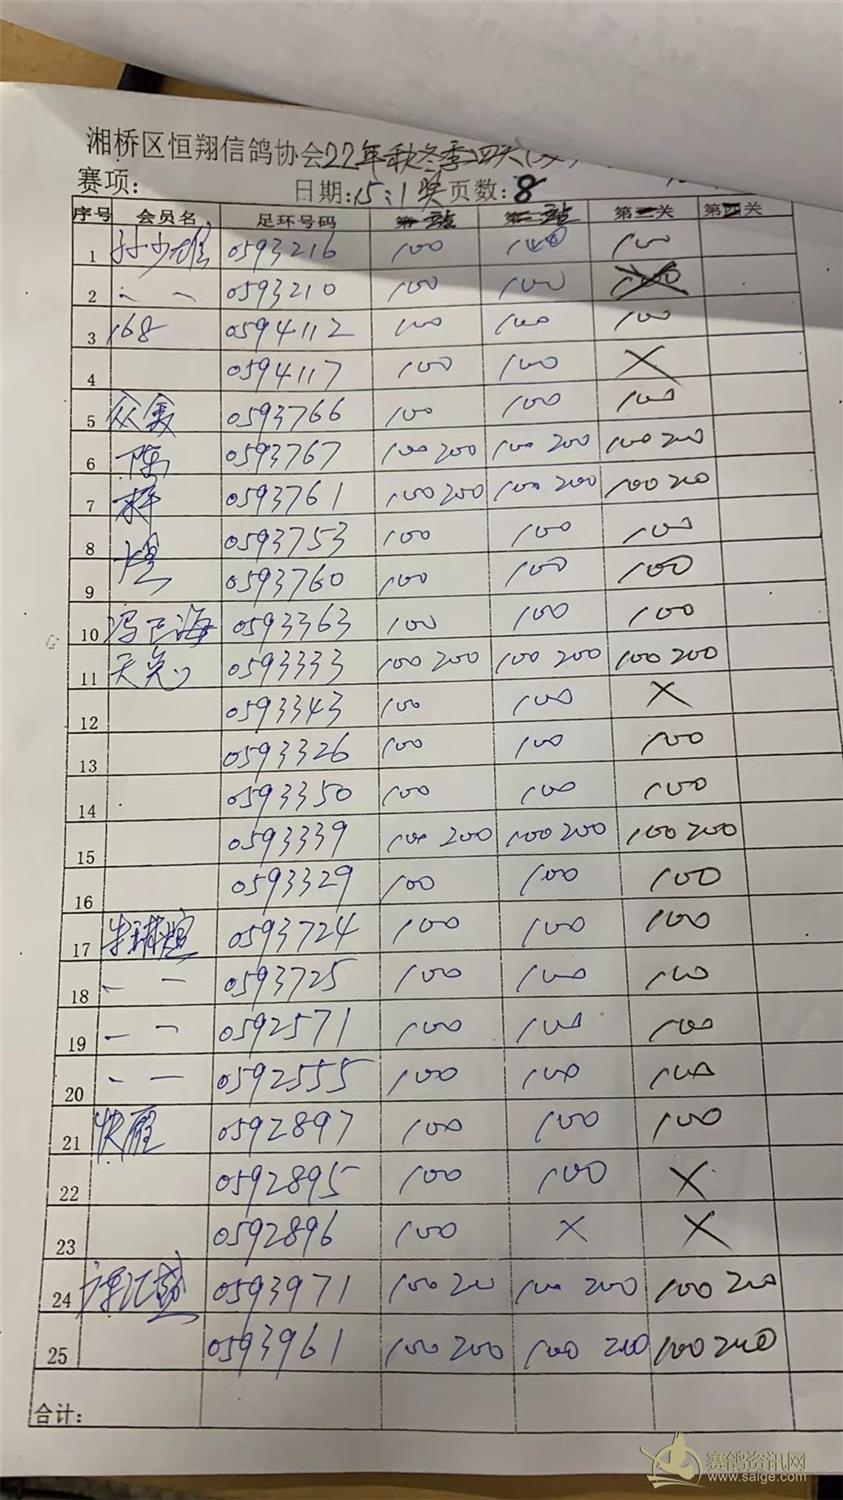 湘桥区恒翔信鸽协会22年秋冬季四关
赛项: 日期:15:1奖页数:8
序号 会员名 足环号码 第一站 第二站 第三关 第四关
1 孙少雄 0593216 100 100 100
2 〃 〃 0593210 100 100
3 168 0594112 100 100 100
4 0594117 100 100 ×
5 众美 0593766 100 100 100
6 陈 0593767 100 200 100 200 100 200
7 梓 0593761 100 200 100 200 100 200
8 煜 0593753 100 100 100
9 0593760 100 100 100
10 海 0593363 100 100 100
11 天兔 0593333 100 200 100 200 100 200
12 0593343 100 100 ×
13 0593326 100 100 100
14 0593350 100 100 100
15 0593339 100 200 100 200 100 200
16 0593329 100 100 100
17 0593724 100 100 100
18 〃 〃 0593725 100 100 100
19 〃 〃 0592571 100 100 100
20 〃 〃 0592555 100 100 100
21 快雁 0592897 100 100 100
22 0592895 100 100 ×
23 0592896 100 × ×
24 0593971 100 200 100 200 100 200
25 0593961 100 200 100 200 100 200
合计:
赛鸽资讯网
www.saige.com